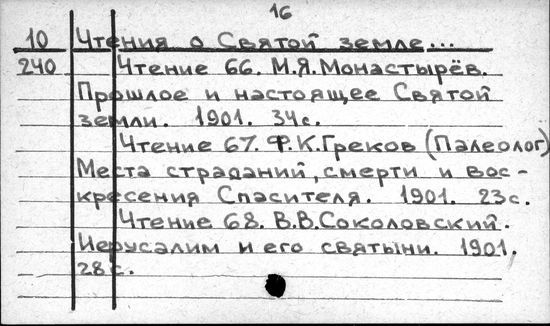 16
10 Чтения о Святой земле...
240 Чтение 66. М.Я.Монастырёв.
Прошлое и настоящее Святой
земли. 1901. 34с.
Чтение 67. Ф.К.Греков (Палеолог)
Места страданий, смерти и вос-
кресения Спасителя. 1901. 23с.
Чтение 68. В.В.Соколовский.
Иерусалим и его святыни. 1901.
28с.